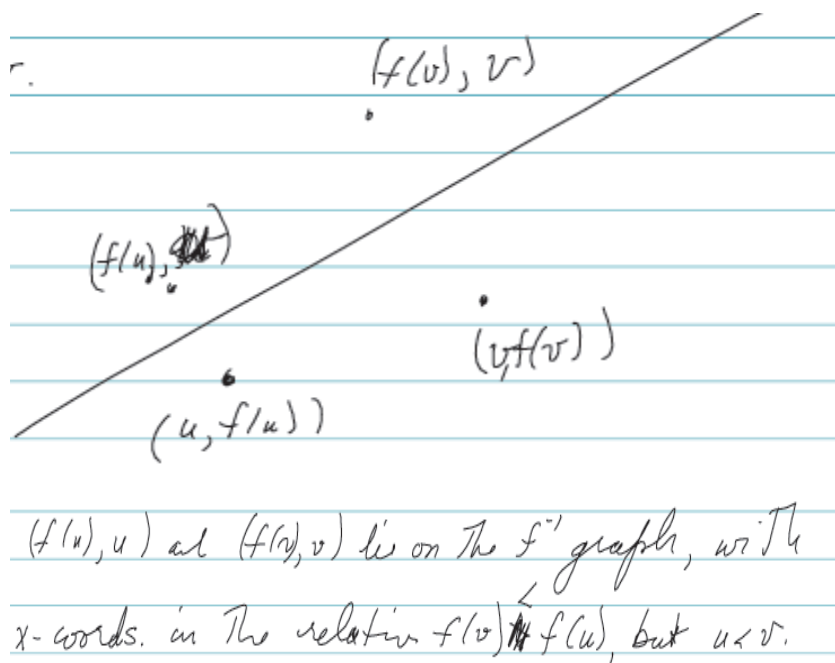 r.
(f(v), v)
(f(u),
(v, f(v))
(u, f(u))
(f(u), u) and (f(v), v) lie on the f⁻¹ graph, with
x-coords. in the relation f(v) < f(u), but u < v.